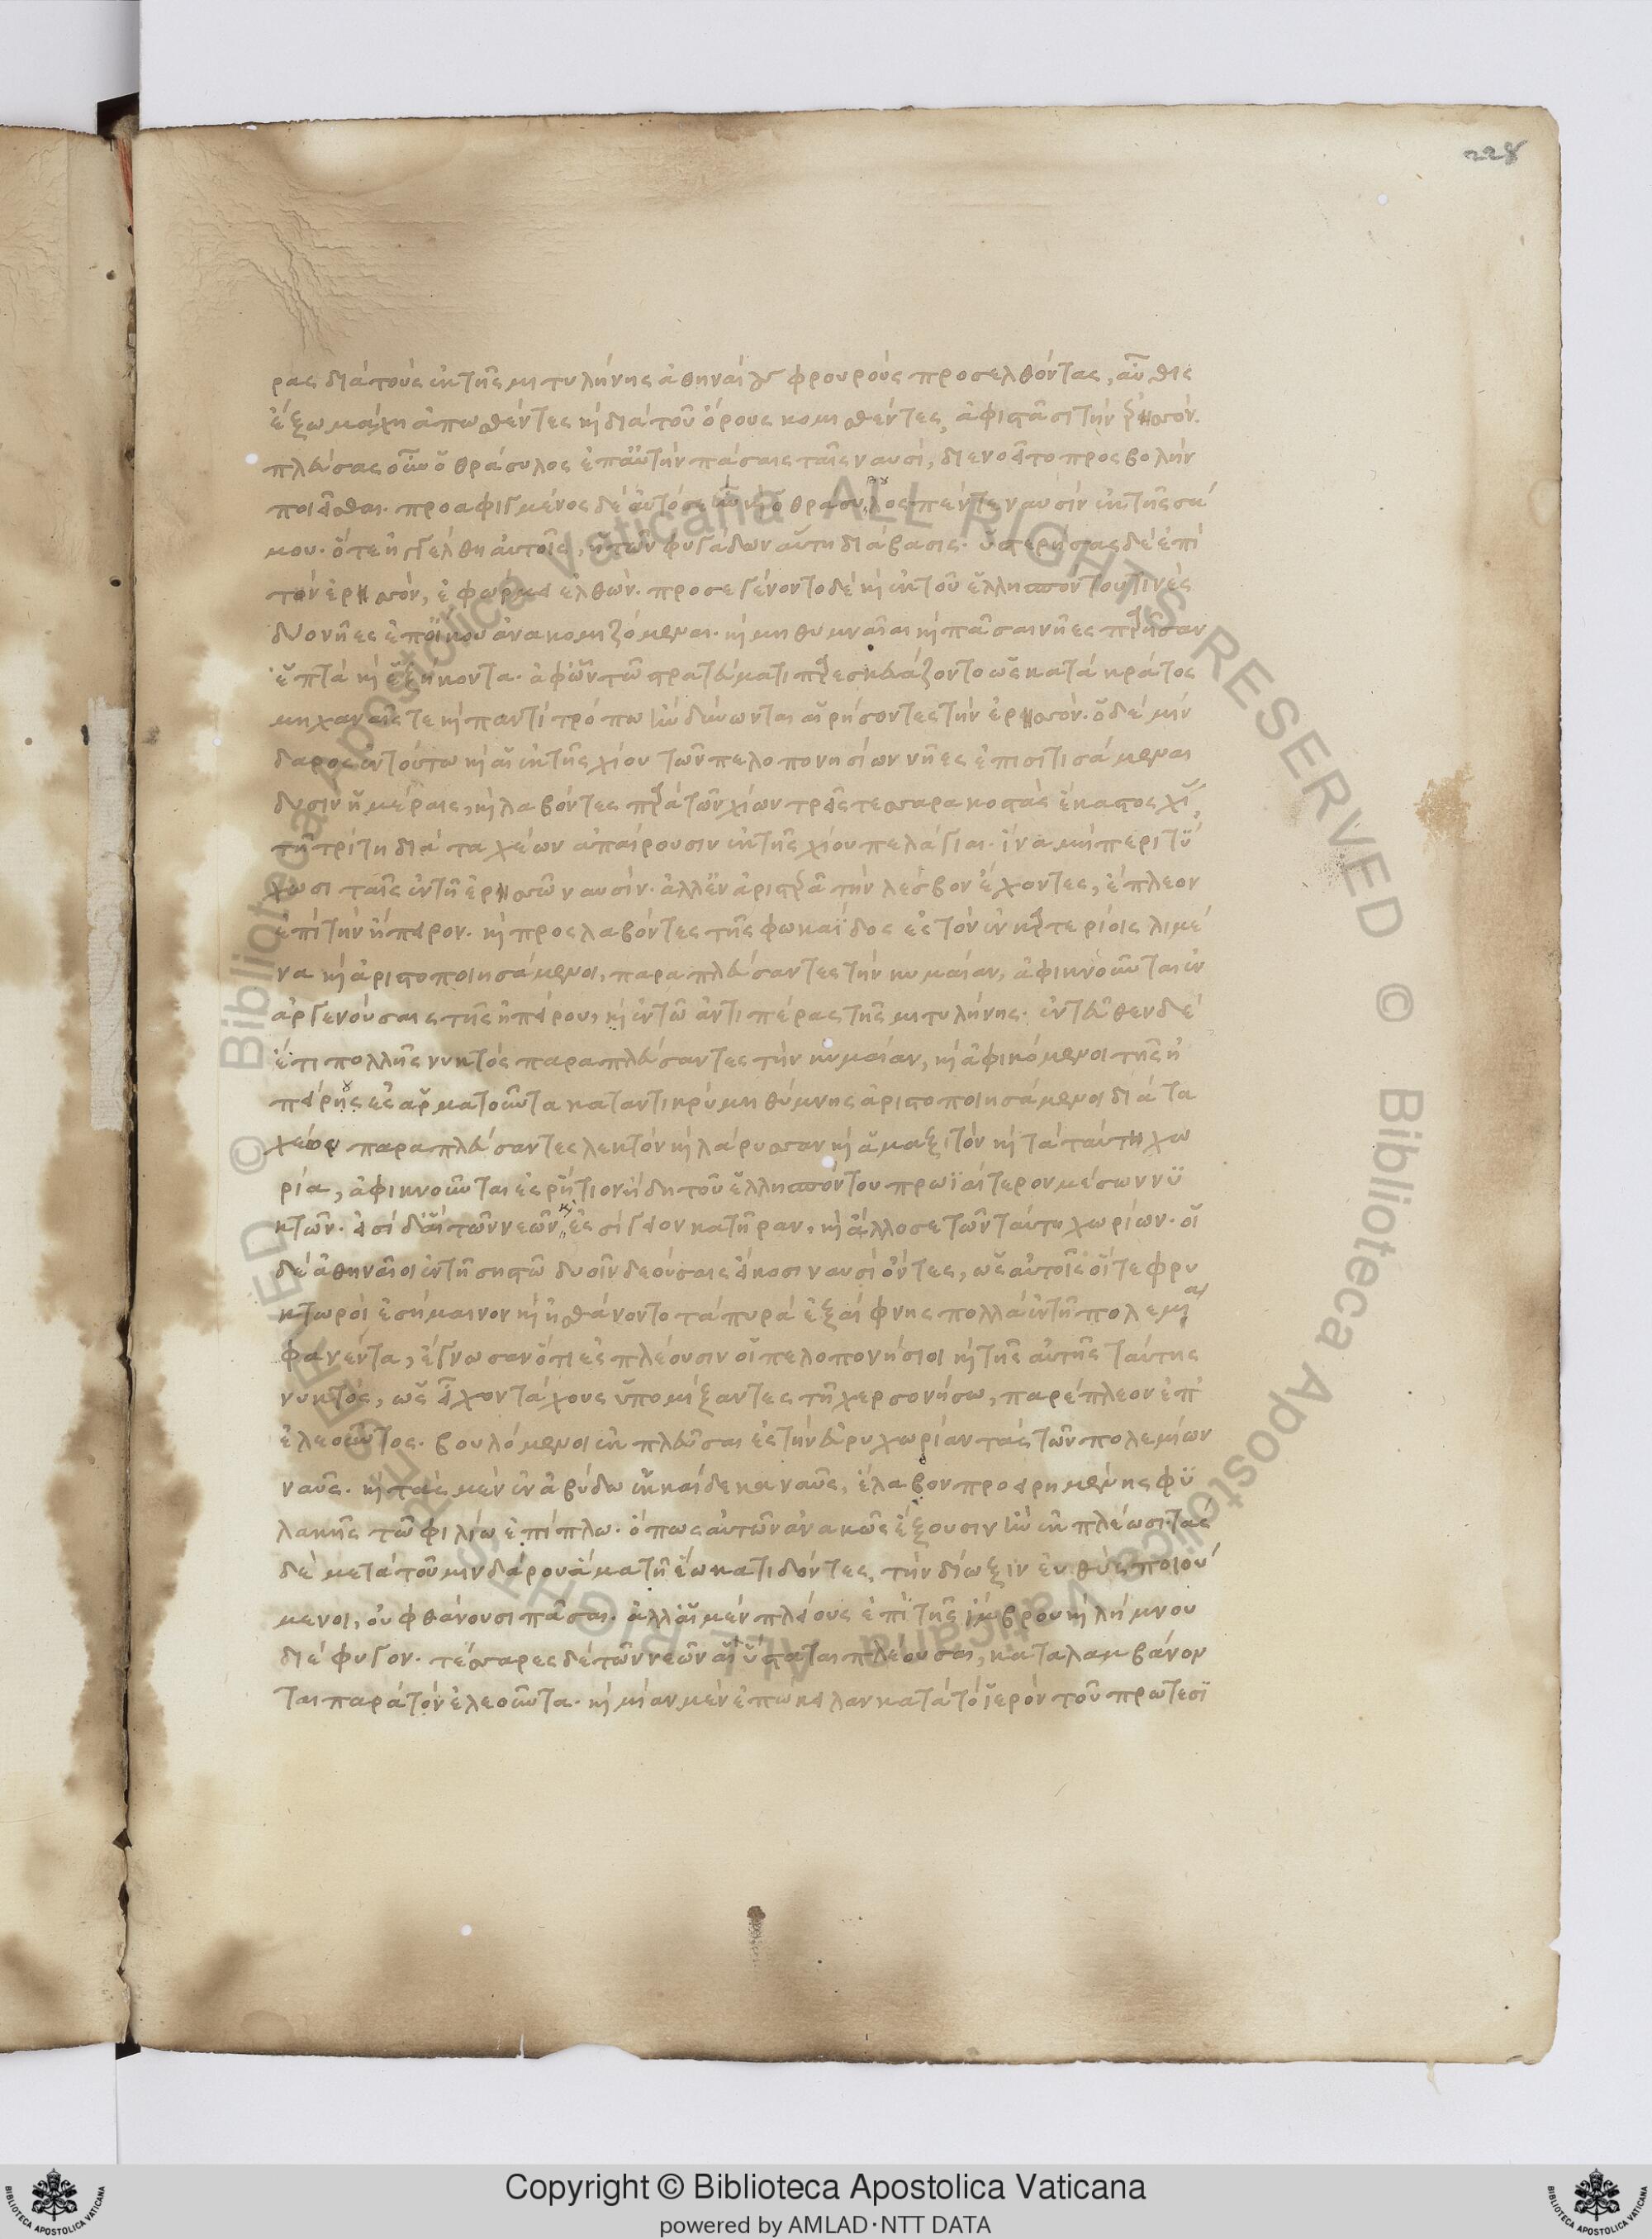 228
ρας διὰ τοὺς ἐκ τῆς μιτυλήνης ἀθηναίων φρουροὺς προσελθόντας, αὖθις
ἔξω μάχη ἀπωσθέντες κ διὰ τοῦ ὄρους κομισθέντες, ἀφιστᾶσι τὴν ἔρεσσόν.
πλεύσας οὖν ὁ θράσυλος ἐπ' αὐτὴν πάσαις ταῖς ναυσί, διενοεῖτο προσβολὴν
ποιεῖσθαι. προαφιγμένος δὲ αὐτόσε ἦν κ ὁ θρασύβουλος πέντε ναυσὶν ἐκ τῆς σά
μου. ὅτε ἠγγέλθη αὐτοῖς, ἡ τῶν φυγάδων αὕτη διάβασις. ὑστερήσας δὲ ἐπὶ
τὴν ἐρεσσόν, ἐφώρμει ἐλθών. προσεγένοντο δὲ κ ἐκ τοῦ ἑλλησπόντου τινὲς
δύο νῆες ἐπ' οἴκου ἀνακομιζόμεναι. κ μηθυμναῖαι κ πᾶσαι νῆες παρῆσαν
ἑπτὰ κ ἑξήκοντα. ἀφ' ὧν τῶ στρατεύματι παρεσκευάζοντο ὡς κατὰ κράτος
μηχαναῖς τε κ παντὶ τρόπω ἢν δύνωνται αἱρήσοντες τὴν ἐρεσσόν. ὁ δὲ μίν
δαρος ἐν τούτω κ αἱ ἐκ τῆς χίου τῶν πελοπονησίων νῆες ἐπισιτισάμεναι
δυσὶν ἡμέραις, κ λαβόντες παρὰ τῶν χίων τρεῖς τεσσαρακοστὰς ἕκαστος χί
τῆ τρίτη διὰ ταχέων ἀπαίρουσιν ἐκ τῆς χίου πελάγιαι. ἵνα μὴ περιτύ
χωσι ταῖς ἐν τῆ ἐρεσσῶ ναυσίν. ἀλλ' ἐν ἀριστερᾶ τὴν λέσβον ἔχοντες, ἔπλεον
ἐπὶ τὴν ἤπειρον. κ προσλαβόντες τῆς φωκαΐδος ἐς τὸν ἐν καρτερίοις λιμέ
να κ ἀριστοποιησάμενοι, παραπλεύσαντες τὴν κυμαίαν, ἀφικνοῦνται ἐν
ἀργενούσαις τῆς ἠπείρου, κ ἐν τῶ ἀντιπέρας τῆς μιτυλήνης. ἐντεῦθεν δὲ
ἔτι πολλῆς νυκτὸς παραπλεύσαντες τὴν κυμαίαν, κ ἀφικόμενοι τῆς ἠ
πείρου ἐς ἁρματοῦντα καταντικρὺ μηθύμνης ἀριστοποιησάμενοι διὰ τα
χέων παραπλεύσαντες λεκτὸν κ λάρυσσαν κ ἁμαξιτὸν κ τὰ ταύτη χω
ρία, ἀφικνοῦνται ἐς ῥήτιον ἤδη τοῦ ἑλλησπόντου πρωϊαίτερον μέσων νυ
κτῶν. εἰσὶ δ' αἳ τῶν νεῶν κ ἐς σίγειον κατῆραν, κ ἄλλοσε τῶν ταύτη χωρίων. οἱ
δὲ ἀθηναῖοι ἐν τῆ σηστῶ δυοῖν δεούσαις εἴκοσι ναυσὶ ὄντες, ὡς αὐτοῖς οἵ τε φρυ
κτωροὶ ἐσήμαινον κ ἠσθάνοντο τὰ πυρὰ ἐξαίφνης πολλὰ ἐν τῆ πολεμία
φανέντα, ἔγνωσαν ὅτι ἐσπλέουσιν οἱ πελοπονήσιοι κ τῆς αὐτῆς ταύτης
νυκτός, ὡς εἶχον τάχους ὑπομίξαντες τῆ χερσονήσω, παρέπλεον ἐπ'
ἐλεοῦντος. βουλόμενοι ἐκπλεῦσαι ἐς τὴν εὐρυχωρίαν τὰς τῶν πολεμίων
ναῦς. κ τὰς μὲν ἐν ἀβύδω ἑκκαίδεκα ναῦς, ἔλαβον προειρημένης φυ
λακῆς τῶ φιλίω ἐπίπλω. ὅπως αὐτῶν ἀνακῶς ἕξουσιν ἢν ἐκπλέωσι. τὰς
δὲ μετὰ τοῦ μινδάρου ἅμα τῆ ἕω κατιδόντες, τὴν δίωξιν εὐθὺς ποιού
μενοι, οὐ φθάνουσι πᾶσαι. ἀλλ' αἱ μὲν πλείους ἐπὶ τῆς ἴμβρου κ λήμνου
διέφυγον. τέσσαρες δὲ τῶν νεῶν αἱ ὕσταται πλέουσαι, καταλαμβάνον
ται παρὰ τὸν ἐλεοῦντα. κ μίαν μὲν ἐπώκειλαν κατὰ τὸ ἱερὸν τοῦ πρωτεσι
Copyright © Biblioteca Apostolica Vaticana
powered by AMLAD·NTT DATA
BIBLIOTECA APOSTOLICA VATICANA
BIBLIOTECA APOSTOLICA VATICANA
© Biblioteca Apostolica Vaticana ALL RIGHTS RESERVED © Biblioteca Apostolica Vaticana ALL RIGHTS RESERVED